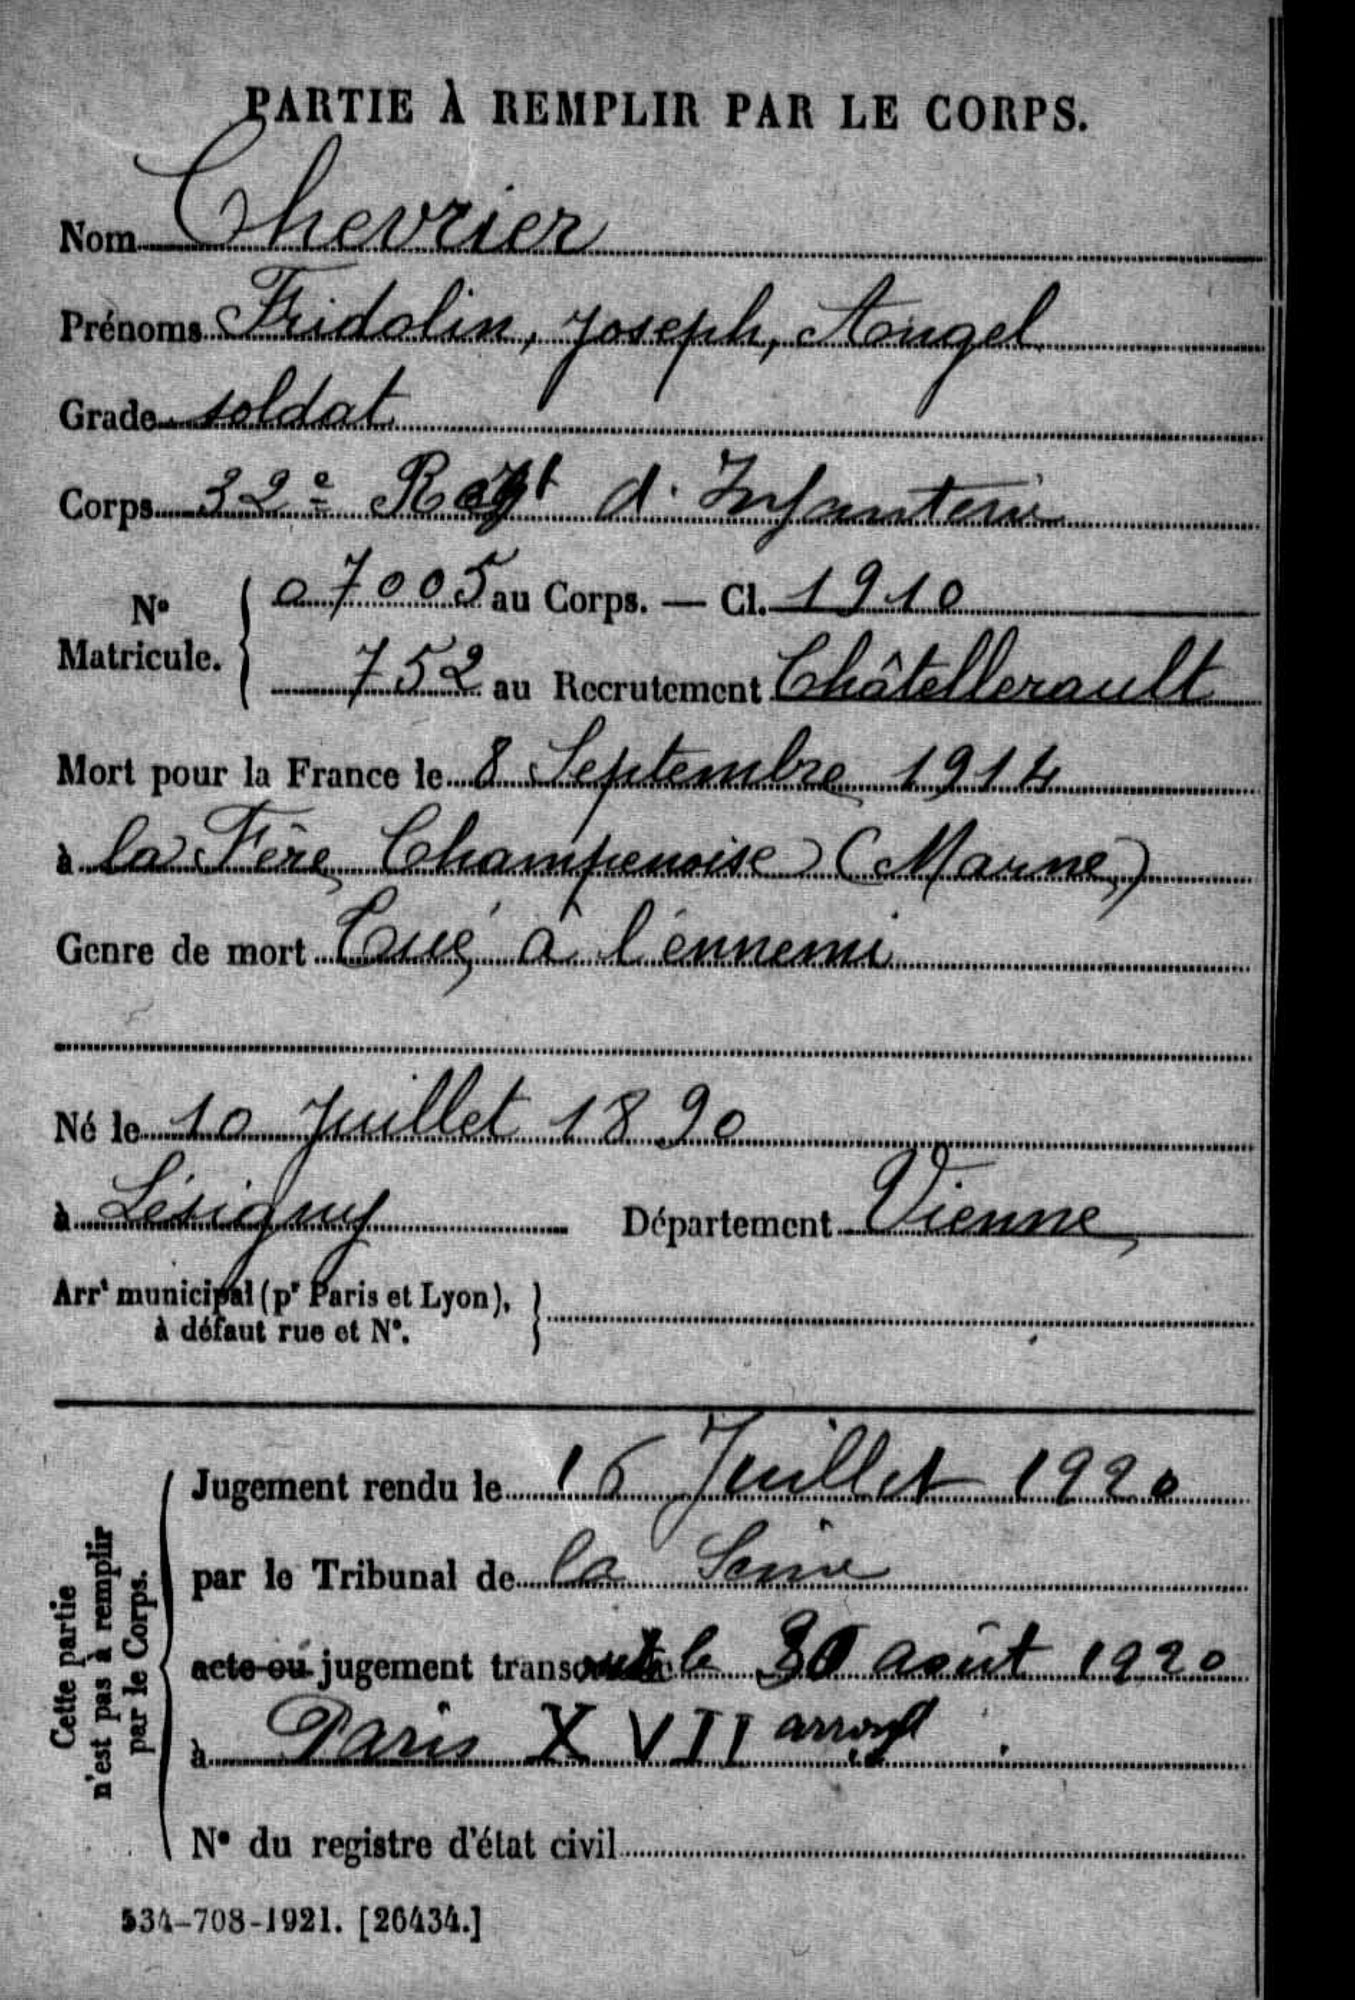 PARTIE À REMPLIR PAR LE CORPS.
Nom Chevrier
Prénoms Fridolin, Joseph, Angel
Grade soldat
Corps 32e Regt d'Infanterie
No Matricule. { 07005 au Corps. — Cl. 1910
752 au Recrutement Châtellerault
Mort pour la France le 8 Septembre 1914
à la Fère Champenoise (Marne)
Genre de mort Tué à l'ennemi
Né le 10 Juillet 1890
à Lésigny Département Vienne
Arrt municipal (pr Paris et Lyon),
à défaut rue et No.
Cette partie
n'est pas à remplir
par le Corps.
Jugement rendu le 16 Juillet 1920
par le Tribunal de la Seine
acte ou jugement transcrit le 30 août 1920
à Paris XVII arrondt
No du registre d'état civil
534-708-1921. [26434.]